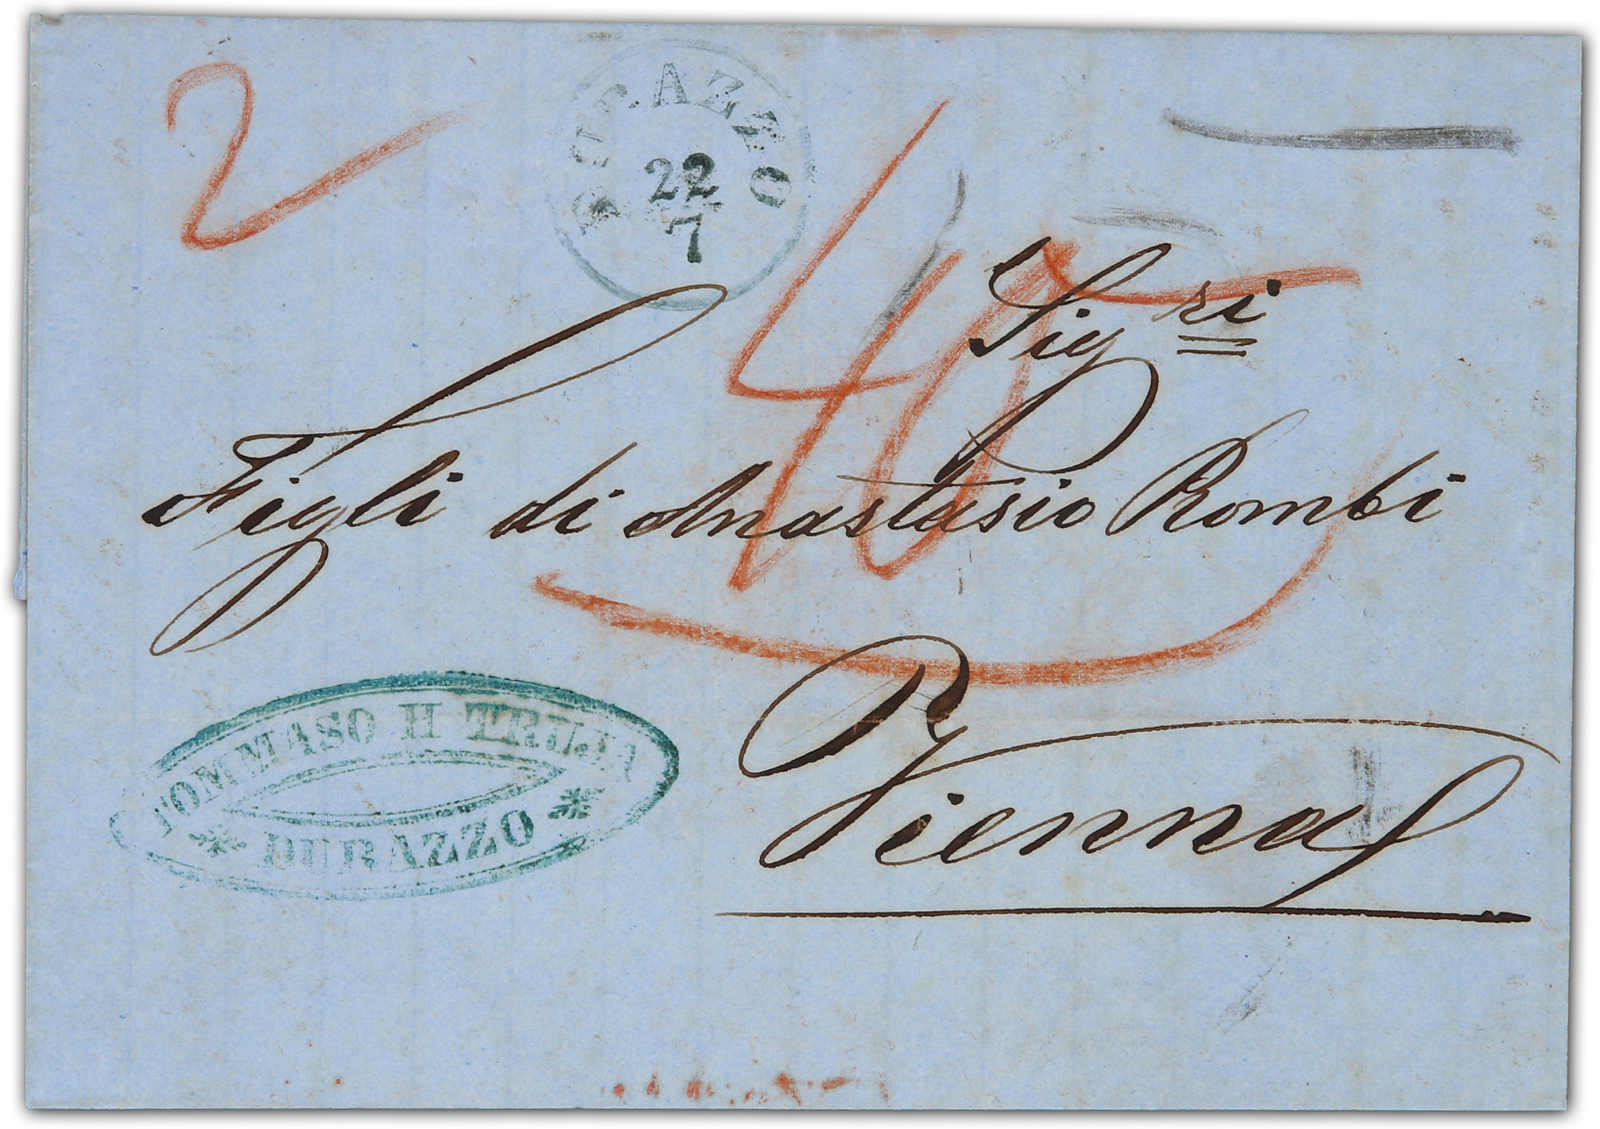 2
DURAZZO
22
7
40
Sigri
Figli di Anastasio Rombi
Vienna
TOMMASO H TRUJA
DURAZZO